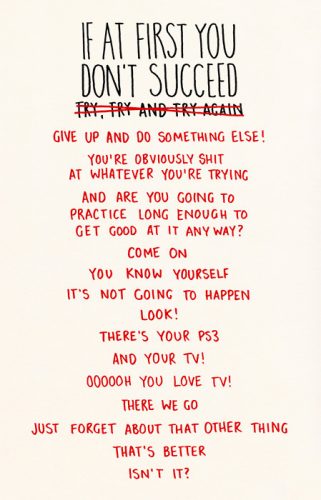 IF AT FIRST YOU
DON'T SUCCEED
TRY, TRY AND TRY AGAIN
GIVE UP AND DO SOMETHING ELSE!
YOU'RE OBVIOUSLY SHIT
AT WHATEVER YOU'RE TRYING
AND ARE YOU GOING TO
PRACTICE LONG ENOUGH TO
GET GOOD AT IT ANY WAY?
COME ON
YOU KNOW YOURSELF
IT'S NOT GOING TO HAPPEN
LOOK!
THERE'S YOUR PS3
AND YOUR TV!
OOOOOH YOU LOVE TV!
THERE WE GO
JUST FORGET ABOUT THAT OTHER THING
THAT'S BETTER
ISN'T IT?